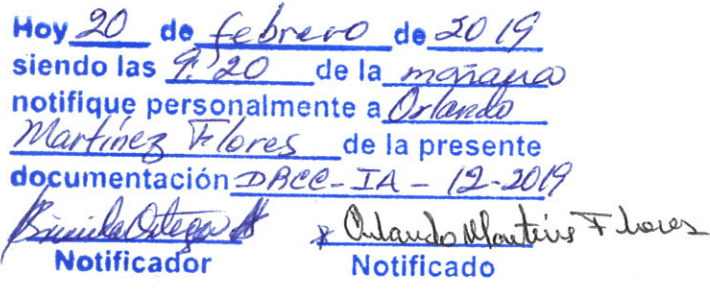 Hoy 20 de febrero de 2019
siendo las 9:20 de la mañana
notifique personalmente a Orlando
Martínez Flores de la presente
documentación DRCC-IA-12-2019
Ortega
Orlando Martínez Flores
Notificador Notificado